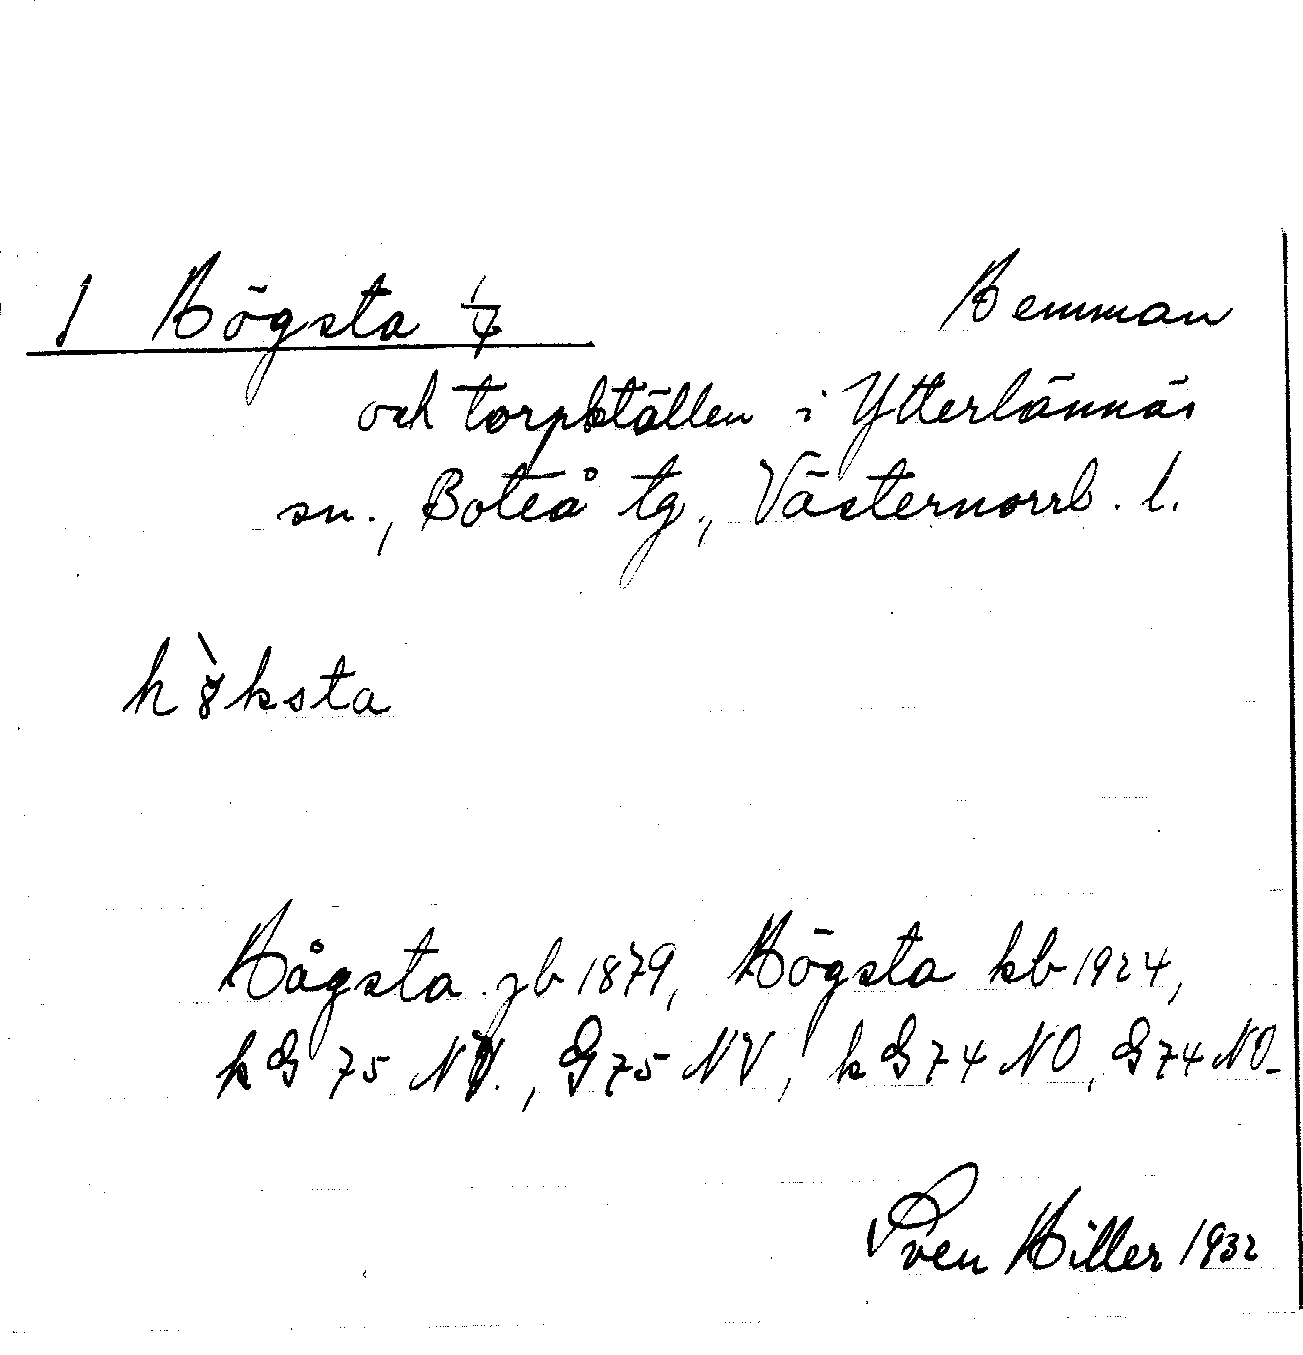 1 Högsta 1/4 Hemman
och torpställen i Ytterlännäs
sn., Boteå tg., Västernorrl. l.
hö̀ksta
Hågsta jb 1879, Högsta kb 1924,
kG 75 NV., G75 NV, kG74 NO, G74 NO.
Sven Hiller 1932